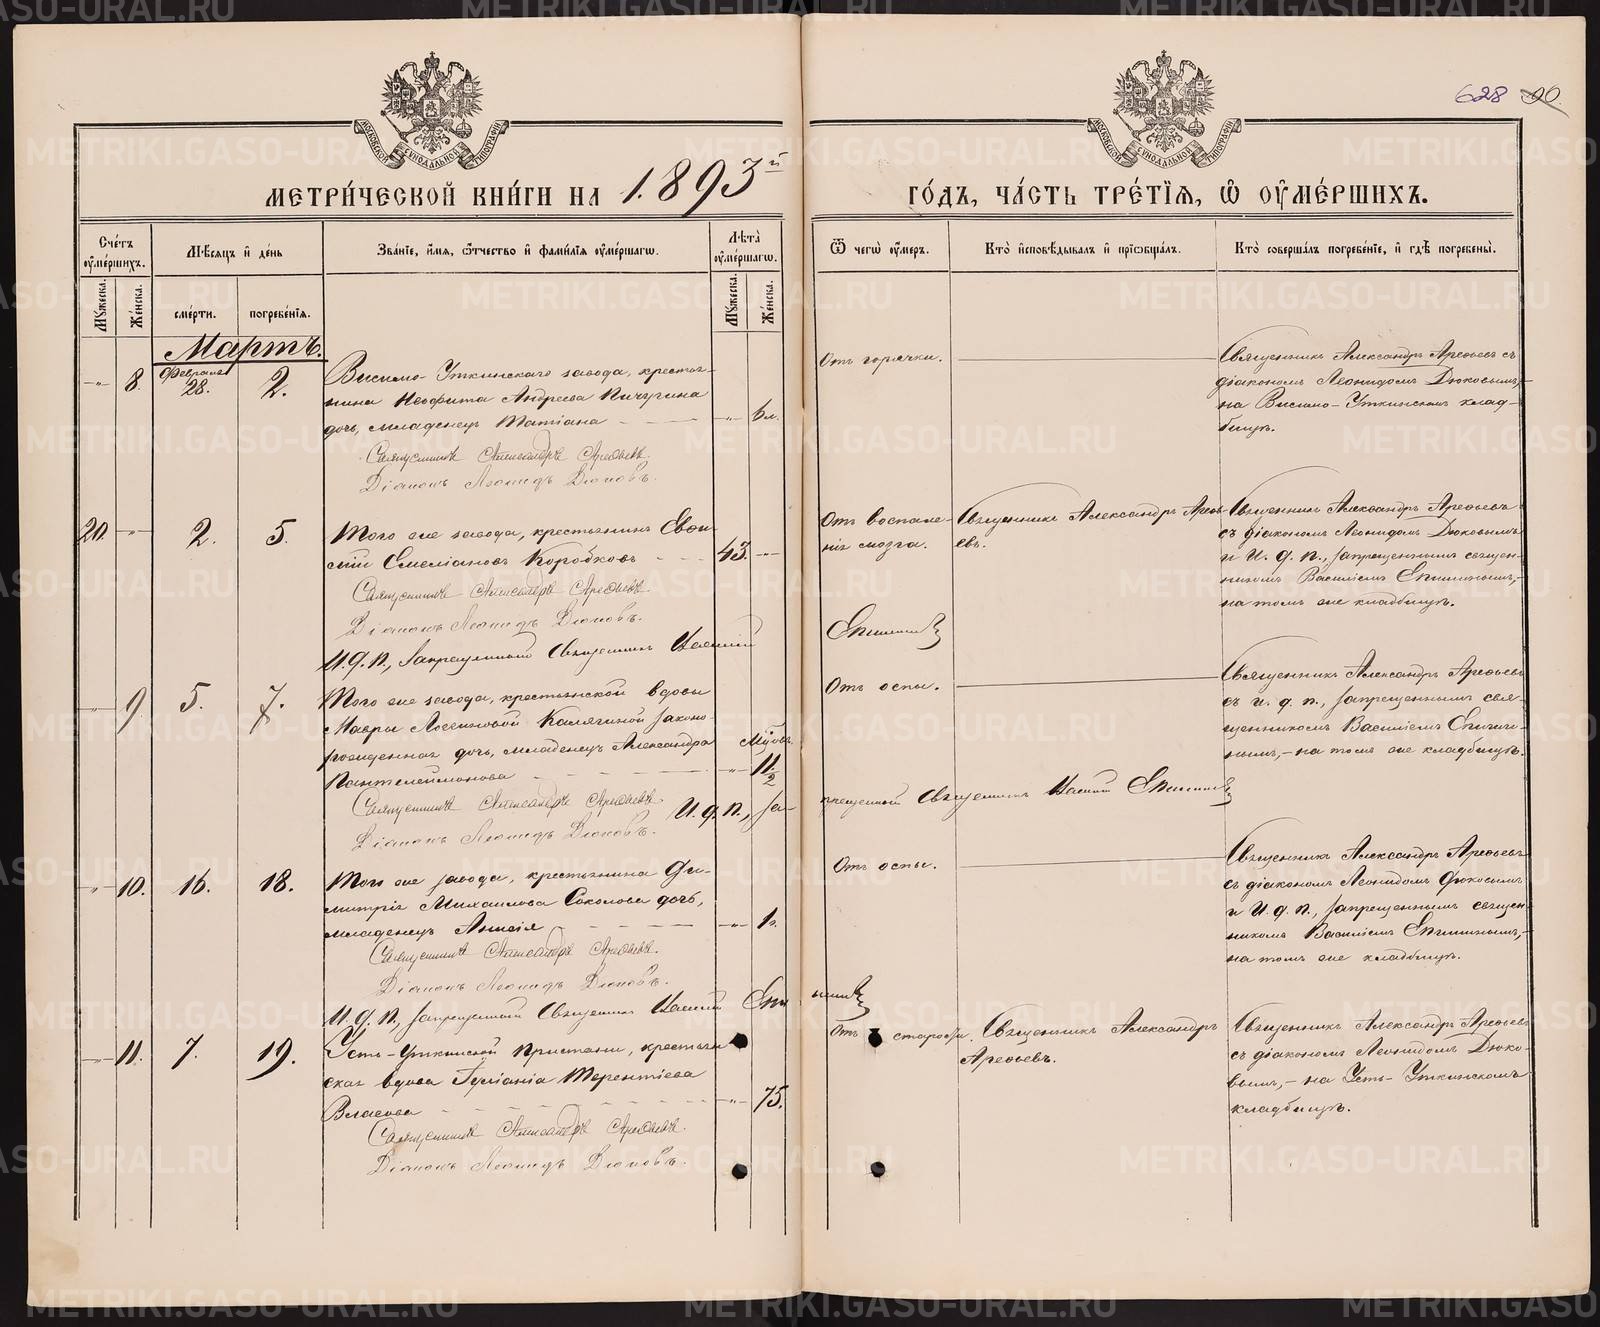 628 90
МОСКОВСКОЙ СѴНОДАЛЬНОЙ ТИПОГРАФІИ
МОСКОВСКОЙ СѴНОДАЛЬНОЙ ТИПОГРАФІИ
МЕТРИ́ЧЕСКОЙ КНИ́ГИ НА 1893й
ГО́ДЪ, ЧА́СТЬ ТРЕ́ТЇѦ, Ѡ҆ ОУ҆МЕ́РШИХЪ.
Сче́тъ оу҆ме́ршихъ.
Мѣ́сяцъ и҆ де́нь
Зва́нїе, и҆́мѧ, ѻ҆́тчество и҆ фами́лїѧ оу҆ме́ршагѡ.
Лѣ́та оу҆ме́ршагѡ.
Ѿ чегѡ̀ оу҆́меръ.
Кто̀ и҆сповѣ́дывалъ и҆ прїѡбща́лъ.
Кто̀ соверша́лъ погребе́нїе, и҆ гдѣ̀ погребены̀.
Мꙋ́жеска.
Же́нска.
сме́рти.
погребе́нїѧ.
Мꙋ́жеска.
Же́нска.
Мартъ.
8. Февраля 28. 2.
Висимо-Уткинскаго завода, крестья-
нина Неофита Андреева Пичугина
дочь, младенецъ Татіана 6 л.
Священникъ Александръ Арефьевъ.
Діаконъ Леонидъ Дюковъ.
Отъ горячки.
Священникъ Александръ Арефьевъ съ
діакономъ Леонидомъ Дюковымъ,
на Висимо-Уткинскомъ клад-
бищѣ.
20. 2. 5.
Того же завода, крестьянинъ Евѳи-
мій Емеліановъ Коробковъ 43.
Священникъ Александръ Арефьевъ.
Діаконъ Леонидъ Дюковъ.
И. д. п., запрещенный Священникъ Василій
Епишинъ
Отъ воспале-
нія мозга.
Священникъ Александръ Арефь-
евъ.
Священникъ Александръ Арефьевъ
съ діакономъ Леонидомъ Дюковымъ
и И. д. п., запрещеннымъ священ-
никомъ Василіемъ Епишинымъ,
на томъ же кладбищѣ.
9. 5. 7.
Того же завода, крестьянской вдовы
Мавры Логиновой Калягиной законо-
рожденная дочь, младенецъ Александра
Пантелеймонова 1½
Священникъ Александръ Арефьевъ.
Діаконъ Леонидъ Дюковъ. И. д. п., за-
прещенный Священникъ Василій Епишинъ
Отъ оспы.
Священникъ Александръ Арефьевъ
съ и. д. п., запрещеннымъ свя-
щенникомъ Василіемъ Епиши-
нымъ,- на томъ же кладбищѣ.
10. 16. 18.
Того же завода, крестьянина Ди-
митрія Михаилова Соколова дочь,
младенецъ 1 г.
Священникъ Александръ Арефьевъ.
Діаконъ Леонидъ Дюковъ.
И. д. п., запрещенный Священникъ Василій Епи-
шинъ
Отъ оспы.
Священникъ Александръ Арефьевъ
съ діакономъ Леонидомъ Дюковымъ
и И. д. п., запрещеннымъ священ-
никомъ Василіемъ Епишинымъ,-
на томъ же кладбищѣ.
11. 7. 19.
Усть-Уткинской Пристани, крестьян-
ская вдова Іуліанія Терентіева
Власова 75.
Священникъ Александръ Арефьевъ.
Діаконъ Леонидъ Дюковъ.
Отъ старости.
Священникъ Александръ
Арефьевъ.
Священникъ Александръ Арефьевъ
съ діакономъ Леонидомъ Дюко-
вымъ,- на Усть-Уткинскомъ
кладбищѣ.
METRIKI.GASO-URAL.RU